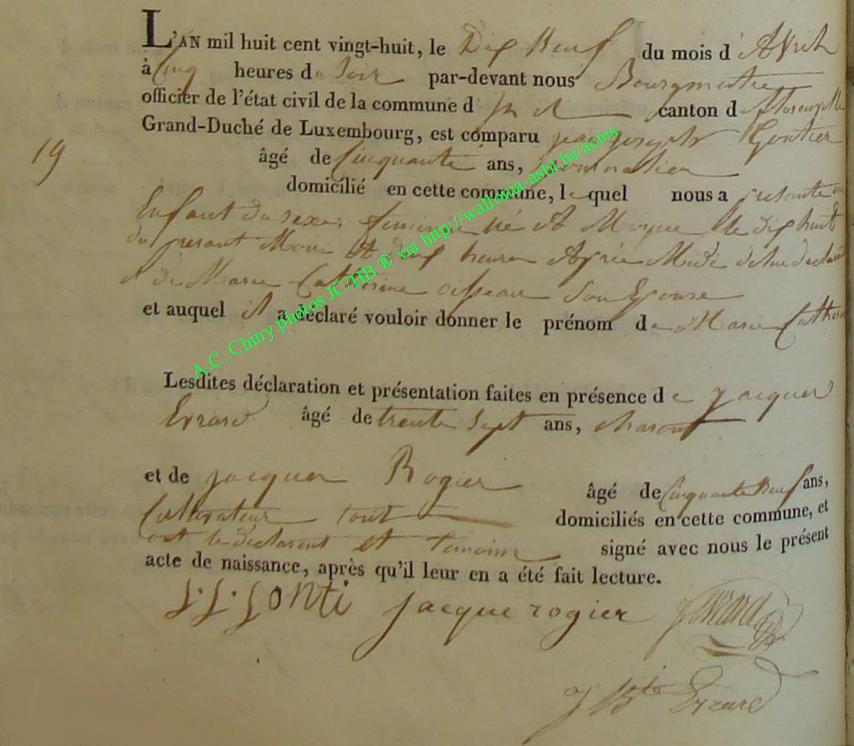 L'AN mil huit cent vingt-huit, le Dix Neuf du mois d'Avril
à Cinq heures du Soir par-devant nous Bourgmestre
officier de l'état civil de la commune d canton de florenville
Grand-Duché de Luxembourg, est comparu jean joseph Gontier
19
âgé de Cinquante ans, journalier
domicilié en cette commune, lequel nous a presenté un
Enfant du sexe feminin né A Moyen le dix huit
du presant Mois A heures Aprés Midi de lui declarant
et de Marie Catherine Son Epouse
et auquel il a déclaré vouloir donner le prénom de Marie Catherine
Lesdites déclaration et présentation faites en présence de jacques
Evrard âgé de trente sept ans, charon
et de jacques Rogier âgé de Cinquante Neuf ans,
Cultivateur tout domiciliés en cette commune, et
ont le declarent et temoins signé avec nous le présent
acte de naissance, après qu'il leur en a été fait lecture.
J. J. Gonti jacque rogier J Evrard
J Bte Evrard
A.C. Chiny photos JC/HB ® via http://wallonia-asbl.be/actes